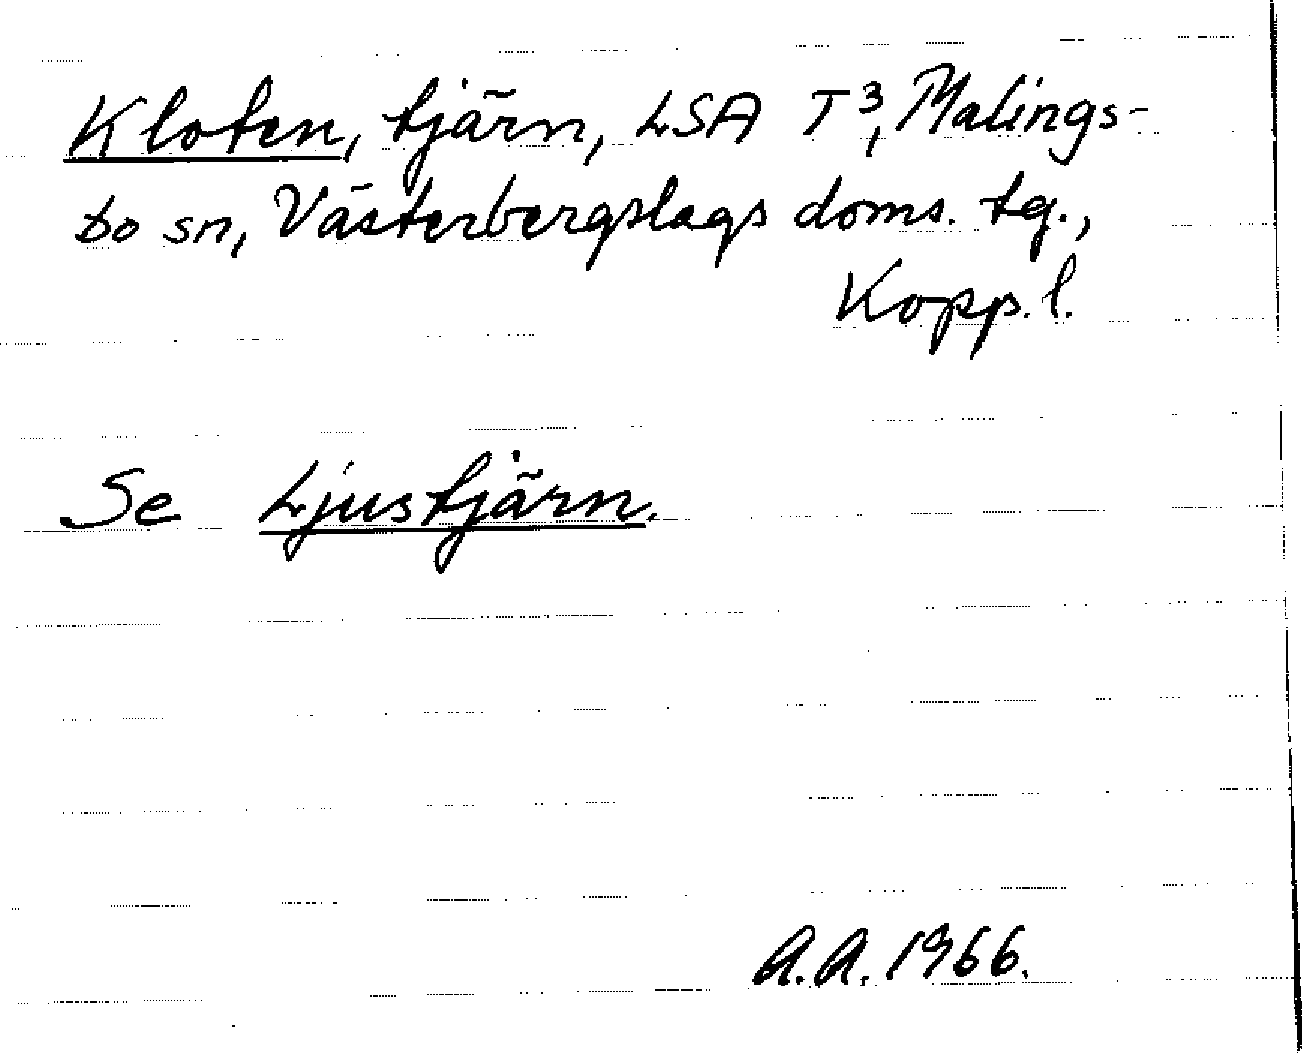 Kloten, tjärn, LSA T³, Malings-
bo sn, Västerbergslags doms. tg.,
Kopp. l.
Se Ljustjärn.
A.A. 1966.